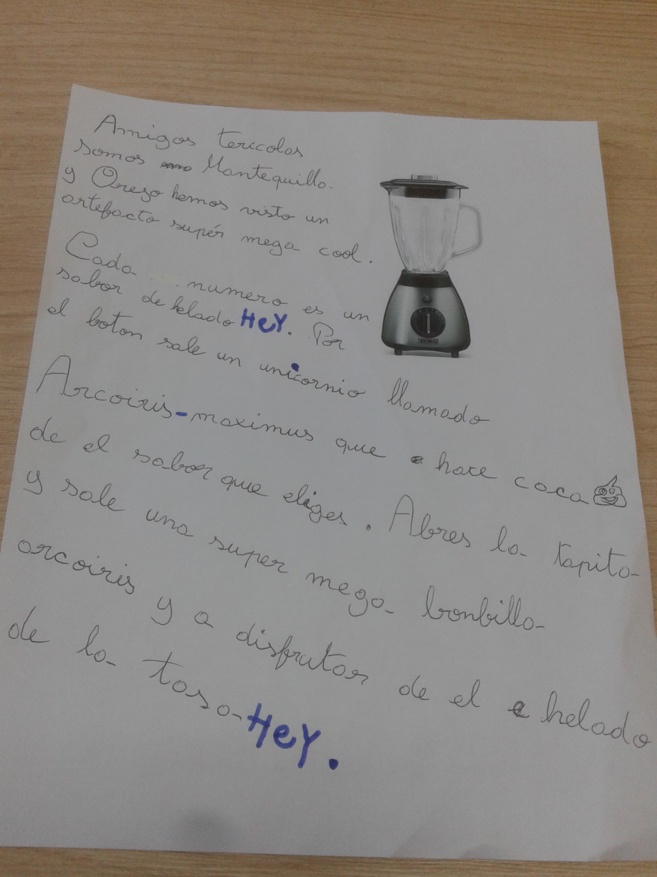 Amigos tericolas
somos Mantequilla
y Orego hemos visto un
artefacto supér mega cool.
Cada numero es un
sabor de helado HeY. Por
el boton sale un unicornio llamado
Arcoiris-maximus que hace caca
de el sabor que eliges. Abres la tapita
y sale una super mega bonbilla
arcoiris y a disfrutar de el helado
de la tasa HeY.